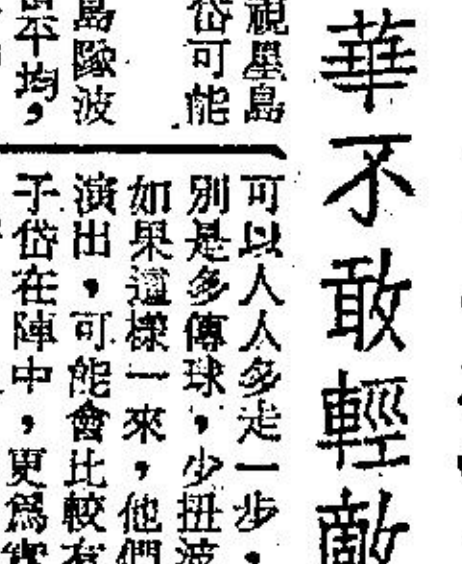 華不敢輕敵
視星島
岱可能
島隊波
平均，
可以人人多走一步，
別是多傳球，少扭波
如果這樣一來，他們
演出，可能會比較有
子岱在陣中，更爲